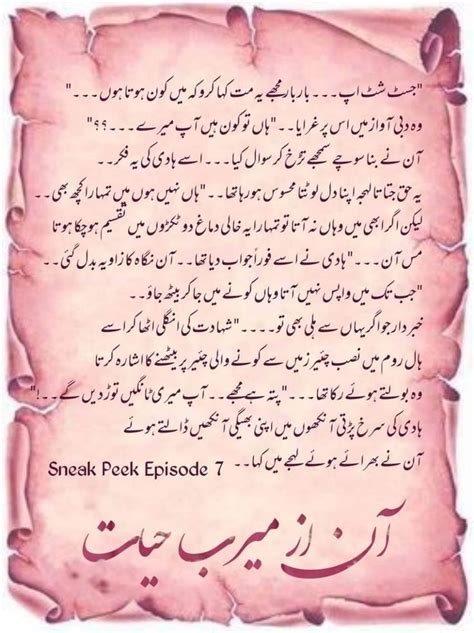 "جسٹ شٹ اپ۔۔۔ بار بار مجھے یہ مت کہا کرو کہ میں کون ہوتا ہوں۔۔۔"
وہ دبی آواز میں اس پر غرایا۔۔"ہاں تو کون ہیں آپ میرے۔۔۔؟؟"
آن نے بنا سوچے سمجھے تڑخ کر سوال کیا۔۔۔ اسے ہادی کی یہ فکر۔۔
یہ حق جتاتا لہجہ اپنا دل لوٹتا محسوس ہو رہا تھا۔۔"ہاں نہیں ہوں میں تمہارا کچھ بھی۔۔
لیکن اگر ابھی میں وہاں نہ آتا تو تمہارا یہ خالی دماغ دو ٹکڑوں میں تقسیم ہو چکا ہوتا
مس آن۔۔۔"ہادی نے اسے فوراً جواب دیا تھا۔۔ آن نگاہ کا زاویہ بدل گئی۔۔
"جب تک میں واپس نہیں آتا وہاں کونے میں جا کر بیٹھ جاؤ۔۔
خبردار جو اگر یہاں سے ہلی بھی تو۔۔۔۔"شہادت کی انگلی اٹھا کر اسے
ہال روم میں نصب چئیرز میں سے کونے والی چئیر پر بیٹھنے کا اشارہ کرتا
وہ بولتے ہوئے رکا تھا۔۔۔"پتہ ہے مجھے۔۔ آپ میری ٹانگیں توڑ دیں گے۔۔!"
ہادی کی سرخ پڑتی آنکھوں میں اپنی بھیگی آنکھیں ڈالتے ہوئے
آن نے بھرائے ہوئے لہجے میں کہا۔۔ Sneak Peek Episode 7
آن از میرب حیات